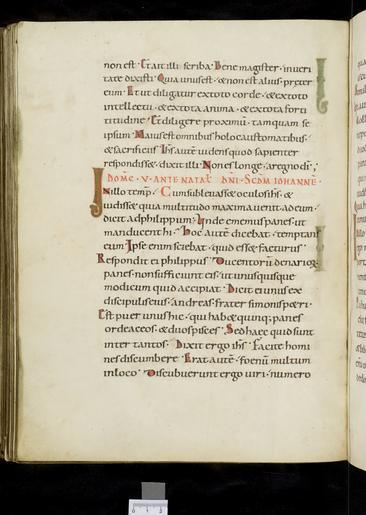 non est. Et ait illi scriba. Bene magister. in veri
tate dixisti. Quia unus est. & non est alius preter
eum. Et ut diligatur ex toto corde. & ex toto
intellectu. & ex tota anima. & ex tota forti
titudine. Et diligere proximū. tamquam se
ipsum. Maius est omnibus holocaustomatibus.
& sacrificiis. Ihs autē videns quod sapienter
respondisset. dixit illi. Non es longe. a regno di;
DOMC. V. ANTE NATAL DNI. SCDM IOHANNE.
In illo temp̄. Cum sublevasset oculos ihs. &
vidisset quia multitudo maxima venit ad eum.
dicit ad philippum. Unde ememus panes. ut
manducent hi. Hoc autē dicebat. temptans
eum. Ipse enim sciebat. quid esset facturus.
Respondit ei philippus. Ducentorū denarioꝝ
panes. non sufficiunt eis. ut unusquisque
modicum quid accipiat. Dicit ei unus ex
discipulis eius. andreas. frater simonis petri.
Est puer unus hic. qui habet quinq; panes
ordeaceos. & duos pisces. Sed haec quid sunt
inter tantos. Dixit ergo ihs. Facite homi
nes discumbere. Erat autē foenū multum
in loco. Discubuerunt ergo viri. numero